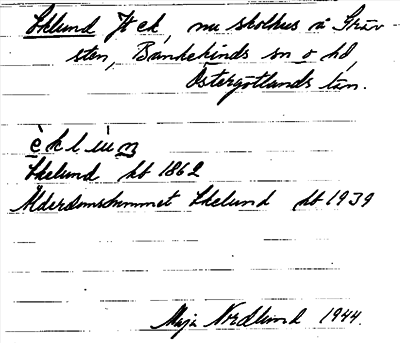 Ekelund ek, nu skolhus å Grav-
sten, Bankekinds sn o hd,
Östergötlands län.
Ekelund hb 1862
Ålderdomshemmet Ekelund hb 1939
Maja Nordlund 1944.